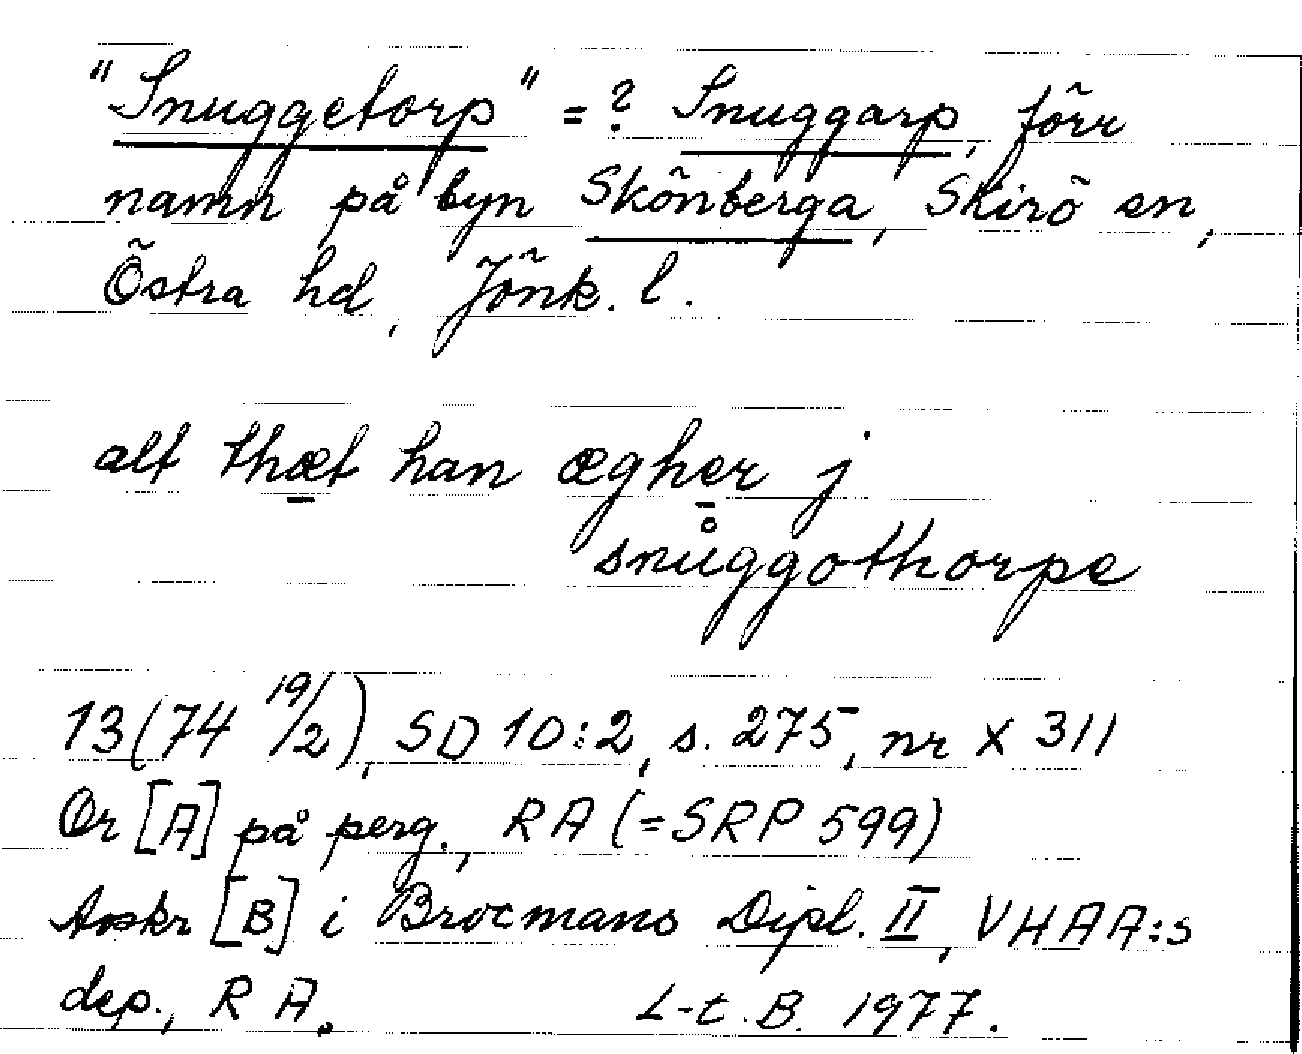 "Snuggetorp" =? Snuggarp, förr
namn på byn Skönberga, Skirö sn,
Östra hd, Jönk. l.
alt thæt han ægher j
snůggothorpe
13(74 19/2), SD 10:2, s. 275, nr X 311
Or [A] på perg., RA (=SRP 599)
Avskr [B] i Brocmans Dipl. II, VHAA:s
dep., RA. L-t. B. 1977.